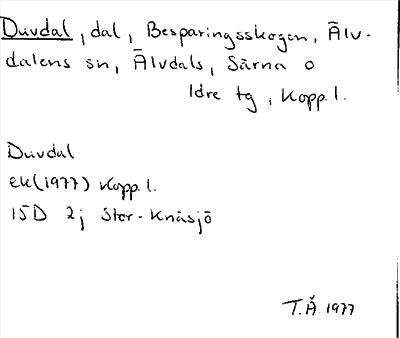 Duvdal, dal, Besparingsskogen, Älv-
dalens sn, Älvdals, Särna o
Idre tg, Kopp. l.
Duvdal
ek (1977) Kopp. l.
15D 2j Stor-Knäsjö
T.Å. 1977